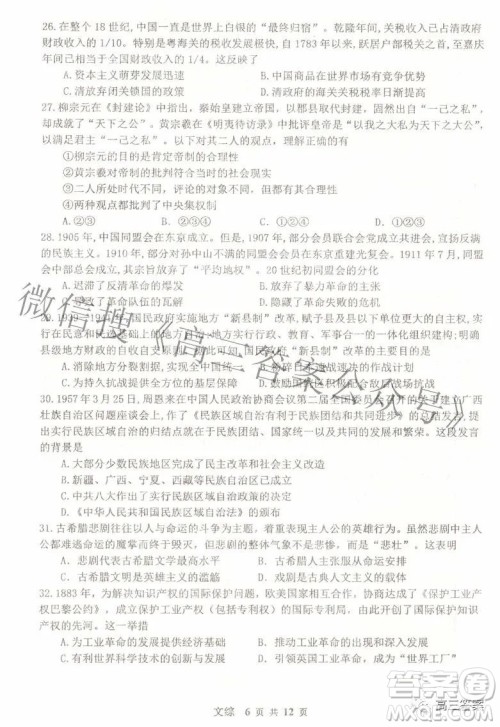 26.在整个 18 世纪,中国一直是世界上白银的“最终归宿”。乾隆年间,关税收入已占清政府
财政收入的 1/10。特别是粤海关的税收发展极快,自 1783 年以来,跃居户部税收首位,至嘉庆
年间已相当于全国财政收入的 1/4。这反映了
A.资本主义萌芽发展迅速 B.中国商品在世界市场有优势
C.清政府放弃闭关锁国的政策 D.清政府的海关关税税率日渐提高
27.柳宗元在《封建论》中指出,秦始皇建立帝国,以郡县取代封建,虽然出于“一己之私”,
却成就了“天下之公”。黄宗羲在《明夷待访录》中批评皇帝是“以我之大私为天下之大公”,
以满足君主“一己之私”。以下对其二人的观点,理解正确的是
①柳宗元的目的是肯定帝制的合理性
②黄宗羲批判帝制的合理性
③二人所处时代、评论的对象不同
④两种观点都批判了中央集权制
A.②③ B.①②③ C.①③④ D.①②③④
28.1905 年,中国同盟会在东京成立。1907 年,部分同盟会会员联合会党,在东京成立共进会。
部分会员对孙中山的民族主义、民权主义比较认同,对民生主义存在重大分歧。1911 年 7 月,中
部同盟会成立,其宗旨放弃了“平均地权”。20 世纪初同盟会的分化
A.迟滞了武昌起义的爆发 B.放弃了反封建的目标
C.影响了革命的深入发展 D.导致了革命队伍的瓦解
29.1939—1945年国民政府实施地方“新县制”改革,赋予县及县以下更大的自主权,规定县实
行在民意和民选基础上的自治,基层实行政治、教育、军事等一体化的行政管理机构;明确
县级地方财政的自收自支原则。国民政府“新县制”改革的目的是
A.消除地方分裂割据,实现全国 B.实施持久战战略决战的作战计划
C.广泛动员民众力量,支持抗日战争 D.鼓励敌后地区积极配合敌后战场抗战
30.1957 年 3 月 25 日,周恩来在中国人民政治协商会议第二届全国委员会关于建立广西
壮族自治区问题座谈会上,作了《民族区域自治有利于民族团结和共同进步》的总结发言,
指出实行民族区域自治是“民族自治与区域自治的正确结合和共同发展”。这一发言
的背景是
A.大部分少数民族地区完成了民主改革和社会主义改造
B.新疆、广西、西藏的民族区域自治政权已建立
C.中共八大确定了实行民族区域自治政策的原则
D.《中华人民共和国民族区域自治法》的颁布
31.古希腊悲剧往往以人与命运的斗争为主题,大都写悲剧主人公的英雄行为。虽然悲剧主人
公都难逃命运的魔掌而终于毁灭,但这毁灭不是失败,而是“悲壮”。这反映出
A.悲剧代表古希腊文学最高水平 B.古希腊人主张服从命运安排
C.古希腊人崇尚英雄主义精神 D.悲剧是古希腊社会现实的反映
32.1883 年,为解决知识产权的国际保护问题,欧美国家发起并缔结了《保护工业产
权巴黎公约》,将保护工业产权(包括专利权)纳入国际公约,开创了国际知识产权保护
体系。这一举措
A.为工业革命的发展提供经济基础 B.为工业革命的发展创造有利条件
C.有利世界科学技术的创新发展 D.引领英国工业革命的发展潮流
文综 6 页 共 12 页
微信搜《高三答案公众号》
答案圈
高三答案